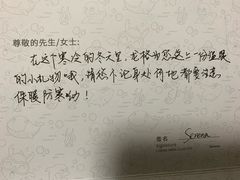 尊敬的先生/女士:
在这个寒冷的冬天里,龙格为您送上一份温暖
的小礼物哦,请您不论身处何地都要注意
保暖防寒呦!
签名 Serena
Signature